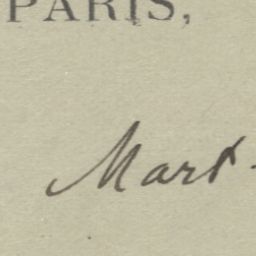 PARIS,
Mart.